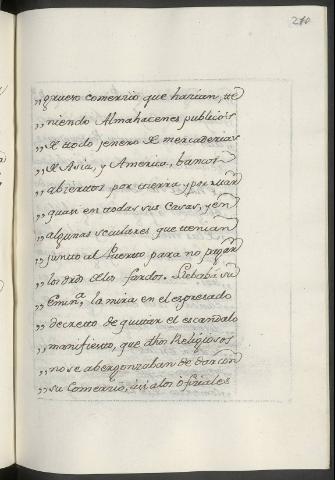 210
„ grueso comerzio que hazian, te
„ niendo Almahacenes publicos
„ de todo jenero de mercaderias
„ de Asia, y America, bancos
„ abiertos por tierra y por mar
„ quasi en todas sus Casas, y en
„ algunas seculares que tenian
„ junto al Puerto para no pagar
„ los dros de los fardos. Llebaba su
„ Emin.ª la mira en el espresado
„ decreto de quitar el escandalo
„ manifiesto, que dhos Religiosos
„ no se abergonzaban de dar con
„ su Comerzio, asi a los ofiziales